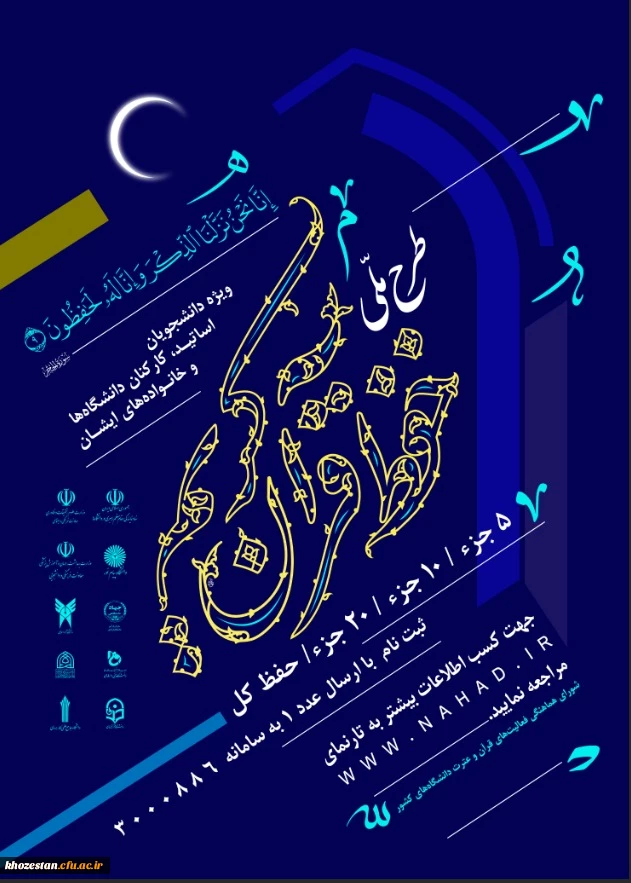 إِنَّا نَحْنُ نَزَّلْنَا الذِّكْرَ وَإِنَّا لَهُ لَحَافِظُونَ
۹
طرح ملّی
حفظ قرآن کریم
ویژه دانشجویان
اساتید، کارکنان دانشگاه‌ها
و خانواده‌های ایشان
۵ جزء / ۱۰ جزء / ۲۰ جزء / حفظ کل
ثبت نام با ارسال عدد ۱ به سامانه ۳۰۰۰۸۸۶
جهت کسب اطلاعات بیشتر به تارنمای
WWW.NAHAD.IR
مراجعه نمایید.
شورای هماهنگی فعالیت‌های قرآن و عترت دانشگاه‌های کشور
khozestan.cfu.ac.ir